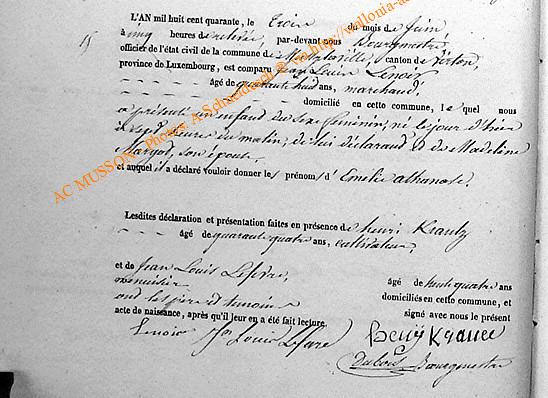 L'AN mil huit cent quarante, le trois du mois de Juin,
15
à cinq heures de relevée, par-devant nous Bourgmestre,
officier de l'état civil de la commune de canton de Virton,
province de Luxembourg, est comparu Jean Louis Lenoir
âgé de quarante huit ans, marchand,
domicilié en cette commune, lequel nous
a présenté un enfant du sexe féminin, né le jour d'hier
à sept heures du matin, de lui déclarant et de Madeleine
Margot, son épouse
et auquel il a déclaré vouloir donner les prénoms d'Emelie athanase.
Lesdites déclaration et présentation faites en présence de henri Krantz
âgé de quarante quatre ans, cultivateur,
et de Jean Louis Lefevre, âgé de trente quatre ans
menuisier domiciliés en cette commune, et
ont les père et temoins signé avec nous le présent
acte de naissance, après qu'il leur en a été fait lecture.
Lenoir Jn Louis Lefevre
Dubois Bourgmestre
AC MUSSON - Photos. A. Schneidesch @ via http://wallonia-a